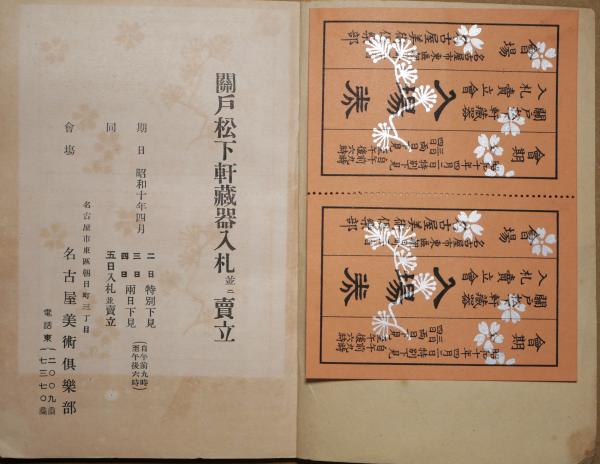 關戶松下軒藏器入札並ニ賣立
期日 昭和十年四月
二日 特別下見
三日
四日 兩日下見 (自午前九時 至午後六時)
同 五日入札並賣立
會場 名古屋市東區朝日町三丁目
名古屋美術俱樂部
電話東 (二〇〇九番 七三七〇番)
會期
昭和十年四月
二日特別下見
三日四日兩日下見
自午前九時
至午後六時
入場券
關戶松下軒藏器
入札賣立會
會場
名古屋市東區朝日町
名古屋美術俱樂部
會期
昭和十年四月
二日特別下見
三日四日兩日下見
自午前九時
至午後六時
入場券
關戶松下軒藏器
入札賣立會
會場
名古屋市東區朝日町
名古屋美術俱樂部